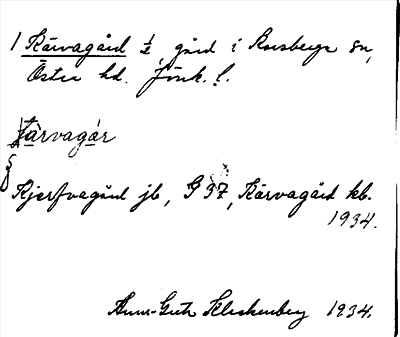 1 Kärvagård ½ gård i Korsberga sn,
Östra hd. Jönk. l.
tarvagar
Kjerfvagård jb, G 97, Kärvagård kb.
1934.
Ann-Greta Kleckenberg 1934.